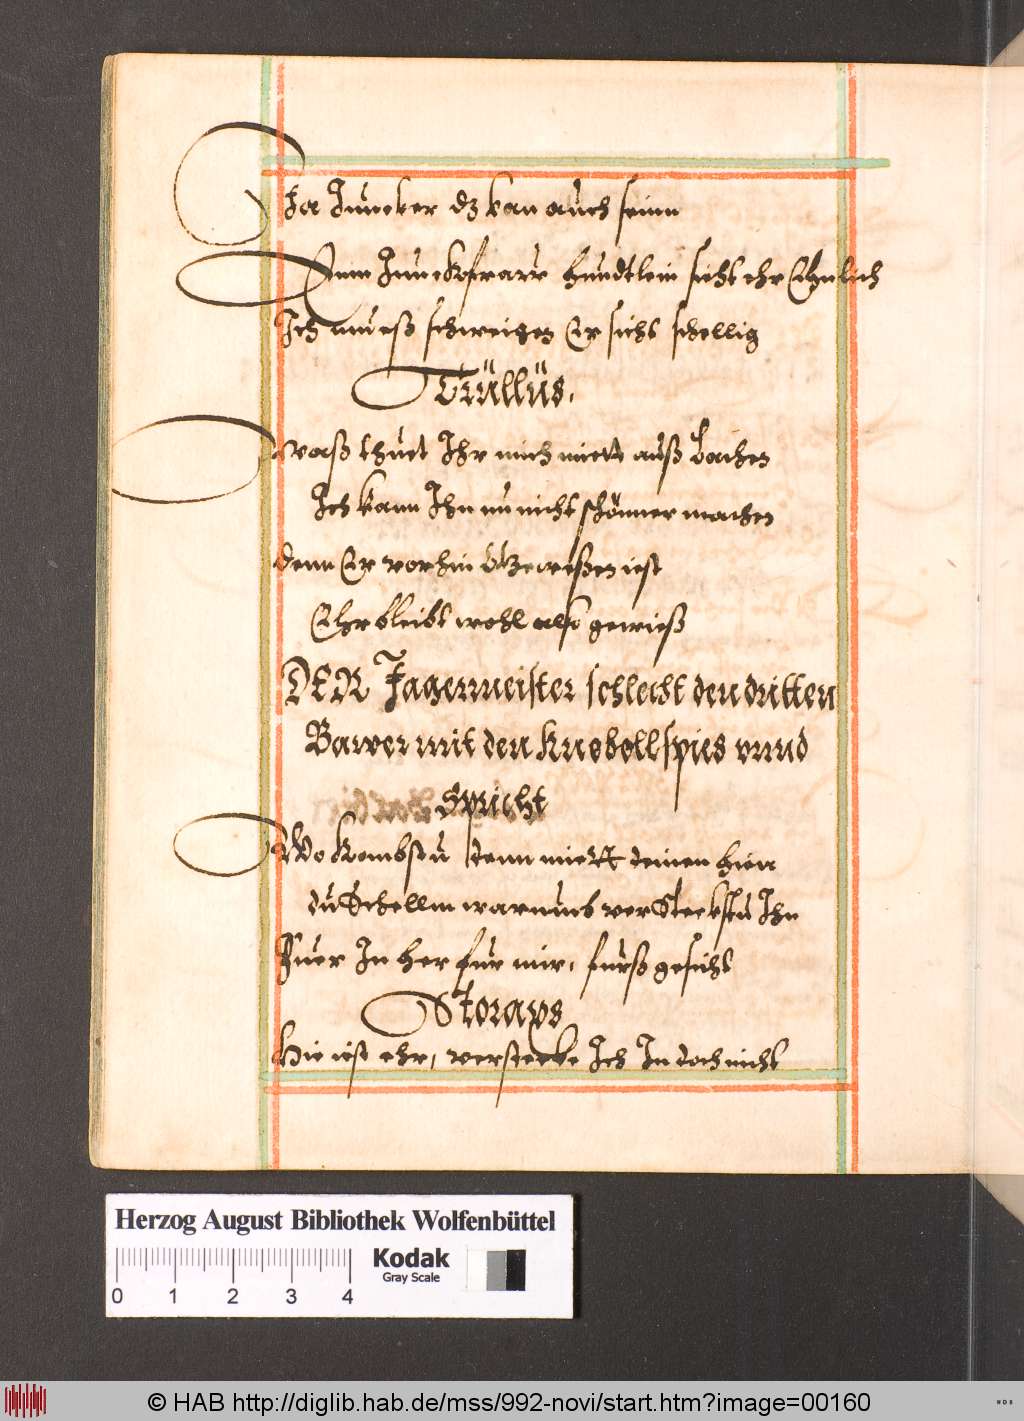 Ja Juncker dz kan auch seinn
Dem Junckofrarr hundtlein sieht ehr Ehnlich
Ich mueß schweigen Er sicht schellig
Trüllüs.
Waß thuet Ihr mich miett auß Lachen
Ich kann Ihn nu nicht schönner machen
denn Er vorhin Gewessen iest
Ehr bleibt wohl also gewieß
DER Jagermeister schlecht den dritten
Bawer mit den Knebellspies vnnd
Spricht
Wo Kombstu denn miett deinen hier
du Schellm warumb versteckstu Ihn
Fuer In her fur mir, furß gesicht
Storaps
Hie iest ehr, verstecke Ich In doch nicht
Herzog August Bibliothek Wolfenbüttel
Kodak
Gray Scale
0 1 2 3 4
© HAB http://diglib.hab.de/mss/992-novi/start.htm?image=00160